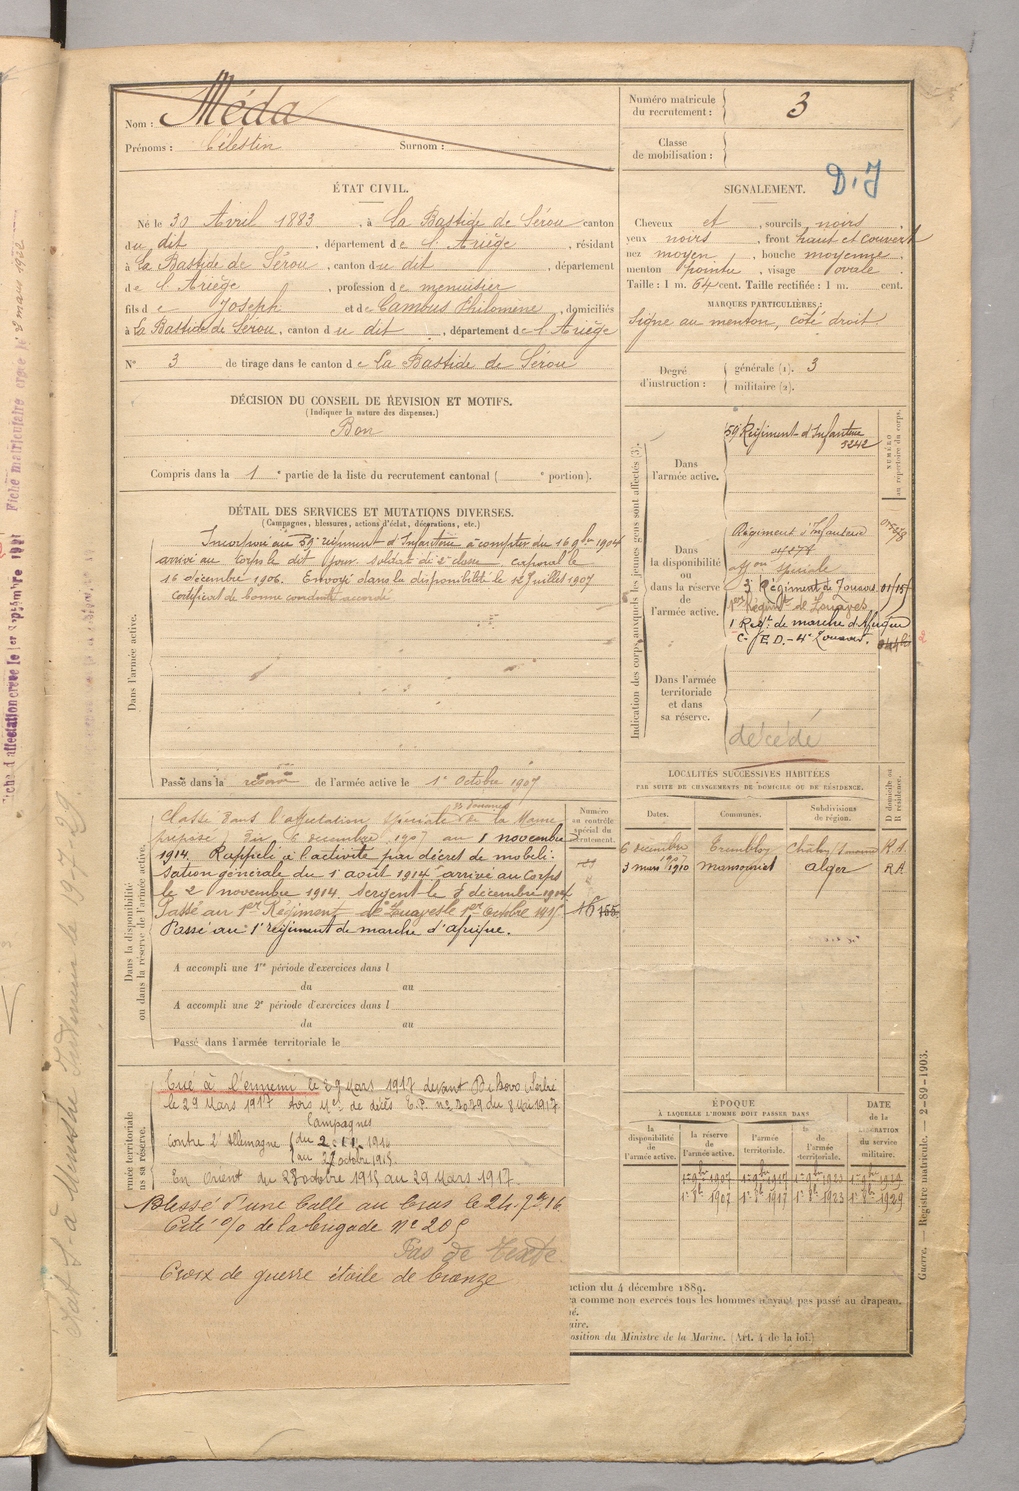 Nom : Méda
Prénoms : Célestin Surnom :
Numéro matricule du recrutement : 3
Classe de mobilisation :
D. J
ÉTAT CIVIL.
Né le 30 Avril 1883, à La Bastide de Sérou canton
du dit, département de l'Ariège, résidant
à La Bastide de Sérou, canton du dit, département
de l'Ariège, profession de menuisier
fils de Joseph et de Cambus Philomène, domiciliés
à La Bastide de Sérou, canton du dit, département de l'Ariège
N° 3 de tirage dans le canton de La Bastide de Sérou
SIGNALEMENT.
Cheveux et, sourcils noirs
yeux noirs, front haut et couvert
nez moyen, bouche moyenne
menton pointu, visage ovale
Taille : 1 m. 64 cent. Taille rectifiée : 1 m. cent.
MARQUES PARTICULIÈRES :
Signe au menton, côté droit
Degré d'instruction : générale (1). 3
militaire (2).
DÉCISION DU CONSEIL DE REVISION ET MOTIFS.
(Indiquer la nature des dispenses.)
Bon
Compris dans la 1e partie de la liste du recrutement cantonal ( e portion).
DÉTAIL DES SERVICES ET MUTATIONS DIVERSES.
(Campagnes, blessures, actions d'éclat, décorations, etc.)
Dans l'armée active.
Incorporé au 59e régiment d'Infanterie à compter du 16 9bre 1904
arrivé au corps le dit jour. soldat de 2e classe. caporal le
16 décembre 1906. Envoyé dans la disponibilité le 12 Juillet 1907
certificat de bonne conduite accordé
Passé dans la réserve de l'armée active le 1er Octobre 1907
Indication des corps auxquels les jeunes gens sont affectés (3).
NUMÉRO au répertoire du corps.
Dans l'armée active.
59e Régiment d'Infanterie
5242
Dans la disponibilité ou dans la réserve de l'armée active.
Régiment d'Infanterie
aff on spéciale
3e Régiment de Zouaves
1er Régiment de Zouaves
1 Regt de marche d'Afrique
C. I. E. D. - 4e Zouaves.
Dans l'armée territoriale et dans sa réserve.
décédé
LOCALITÉS SUCCESSIVES HABITÉES
PAR SUITE DE CHANGEMENTS DE DOMICILE OU DE RÉSIDENCE.
Dates. Communes. Subdivisions de région. D domicile ou R résidence.
6 décembre 1907 R.A.
3 mars 1910 Mansouriah alger R A
Dans la disponibilité ou dans la réserve de l'armée active.
Numéro au contrôle spécial du recrutement.
Classé dans l'affectation spéciale des douanes de la Marne
(préposé) Du 6 décembre 1907 au 1 novembre
1914. Rappelé à l'activité par décret de mobili-
sation générale du 1er août 1914 arrivé au Corps
le 2 novembre 1914. Sergent le 5 décembre 1914.
Passé au 1er Régiment de Zouaves le 1er Octobre 1915
Passé au 1er régiment de marche d'afrique.
A accompli une 1re période d'exercices dans l
du au
A accompli une 2e période d'exercices dans l
du au
Passé dans l'armée territoriale le
Tué à l'ennemi le 29 Mars 1917 devant (Serbie
le 29 Mars 1917 Avis Mel de décès du 8 Mai 1917
Campagnes
Contre l'Allemagne du 2. 11. 1914
au 27 octobre 1915.
En Orient du 28 octobre 1915 au 29 Mars 1917.
Blessé d'une balle au bras le 24. 7bre 16
Cité o/o de la brigade N° 205
Pas de texte.
Croix de guerre étoile de bronze
ÉPOQUE
À LAQUELLE L'HOMME DOIT PASSER DANS
DATE de la LIBÉRATION du service militaire.
la disponibilité de l'armée active. la réserve de l'armée active. l'armée territoriale. la réserve de l'armée territoriale.
1er 8bre 1907 1er 8bre 1917 1er 8bre 1923 1er 8bre 1929
ction du 4 décembre 1889.
a comme non exercés tous les hommes n'ayant pas passé au drapeau.
osition du Ministre de la Marine. (Art. 4 de la loi.)
Guerre. — Registre matricule. — 2-89-1903.